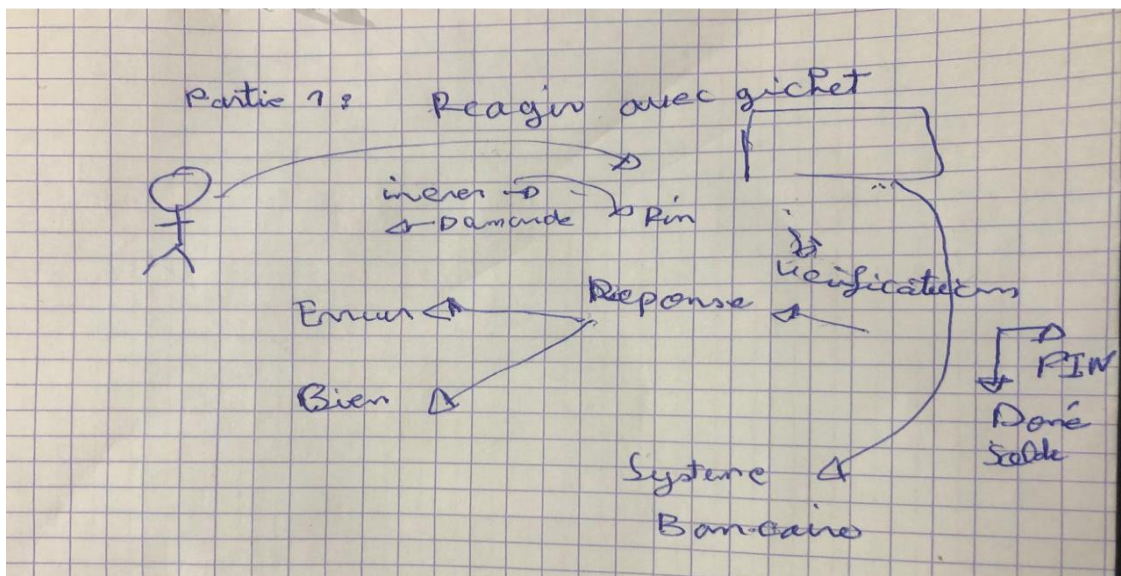 Partie 1 : Reagir avec gichet
inerer
Damande
Pin
Verification
Reponse
Errur
Bien
PIN
Doné
Solde
Systeme
Bancaire